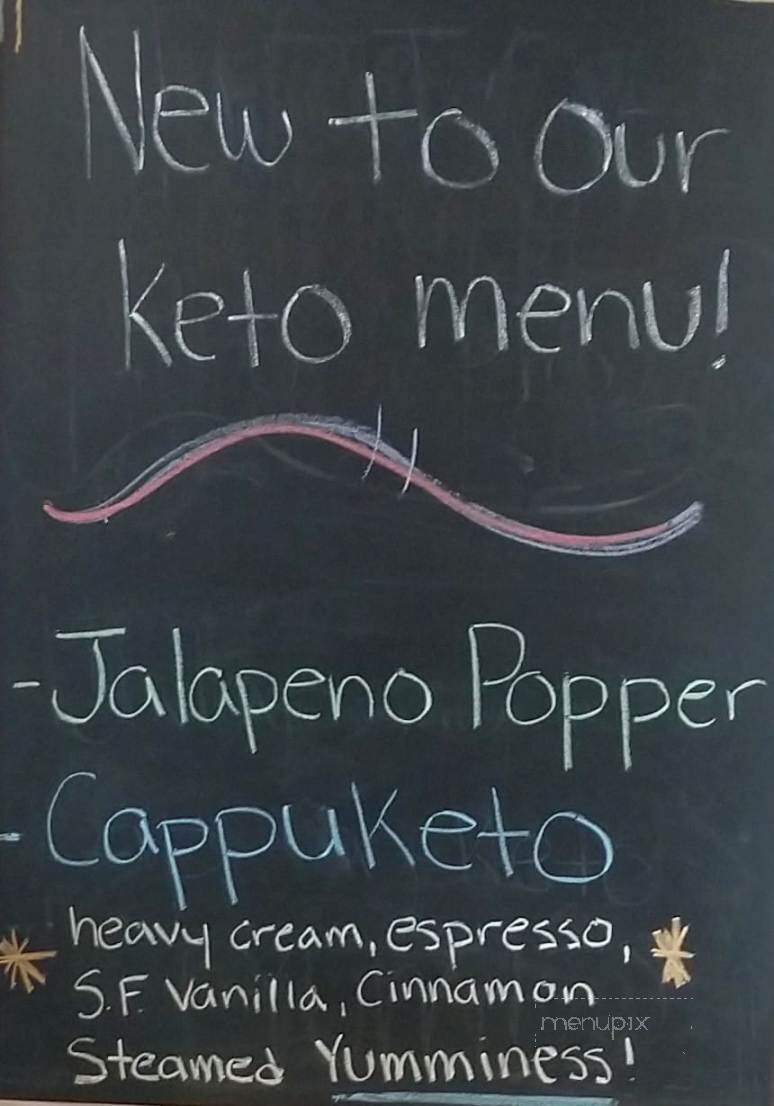 New to our
Keto menu!
- Jalapeno Popper
- Cappuketo
heavy cream, espresso,
S.F. Vanilla, Cinnamon
menupix
Steamed Yumminess!